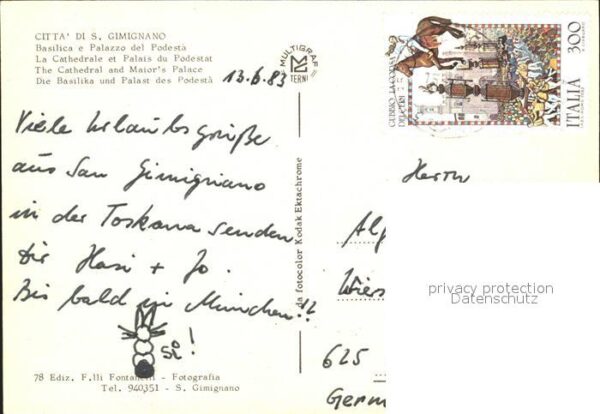 CITTA' DI S. GIMIGNANO
Basilica e Palazzo del Podestà
La Cathedrale et Palais du Podestat
The Cathedral and Maior's Palace
Die Basilika und Palast des Podestà
MULTIGRAF
TERNI
13.6.83
Viele Urlaubsgrüße
aus San Gimignano
in der Toskana senden
dir Hasi + Jo.
Bis bald in München!!
Si!
78 Ediz. F.lli Fontanelli - Fotografia
Tel. 940351 - S. Gimignano
da fotocolor Kodak Ektachrome
GUBBIO, LA CORSA
DEI CERI
ITALIA 300
Herrn
Alf
Wies
625
Germ
privacy protection
Datenschutz